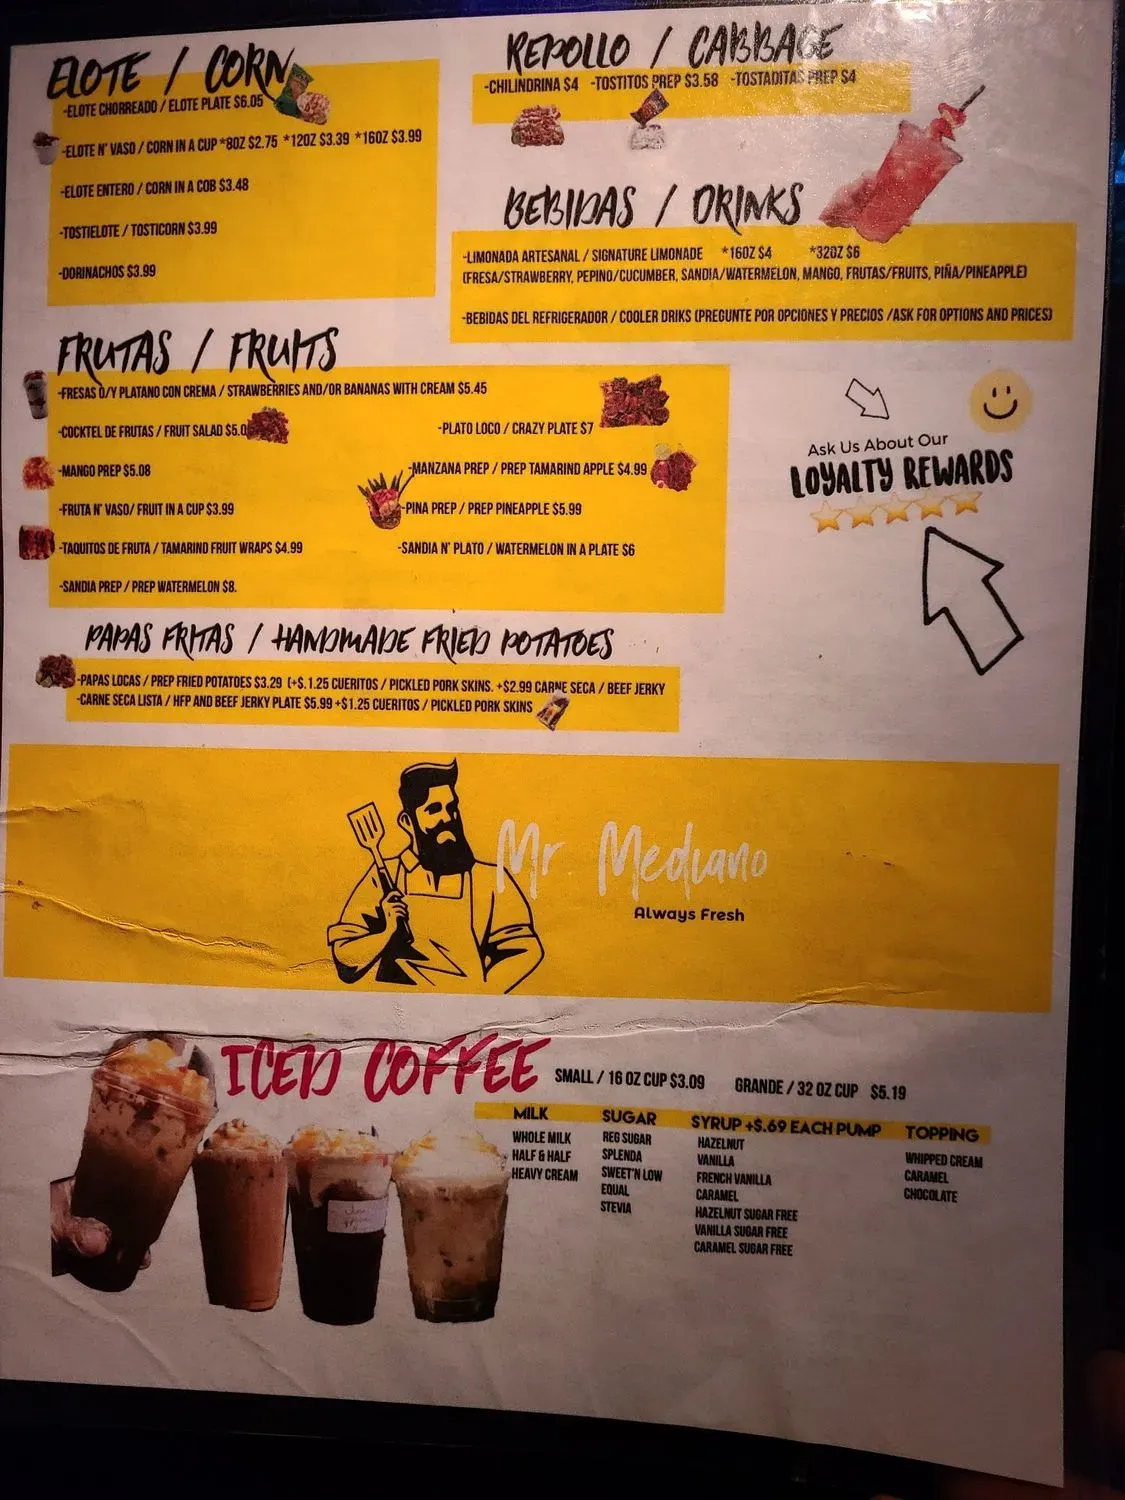 ELOTE / CORN
-ELOTE CHORREADO / ELOTE PLATE $6.05
-ELOTE N' VASO / CORN IN A CUP *8OZ $2.75 *12OZ $3.39 *16OZ $3.99
-ELOTE ENTERO / CORN IN A COB $3.48
-TOSTIELOTE / TOSTICORN $3.99
-DORINACHOS $3.99
REPOLLO / CABBAGE
-CHILINDRINA $4 -TOSTITOS PREP $3.58 -TOSTADITAS PREP $4
BEBIDAS / DRINKS
-LIMONADA ARTESANAL / SIGNATURE LIMONADE *16OZ $4 *32OZ $6
(FRESA/STRAWBERRY, PEPINO/CUCUMBER, SANDIA/WATERMELON, MANGO, FRUTAS/FRUITS, PIÑA/PINEAPPLE)
-BEBIDAS DEL REFRIGERADOR / COOLER DRIKS (PREGUNTE POR OPCIONES Y PRECIOS /ASK FOR OPTIONS AND PRICES)
FRUTAS / FRUITS
-FRESAS O/Y PLATANO CON CREMA / STRAWBERRIES AND/OR BANANAS WITH CREAM $5.45
-COCKTEL DE FRUTAS / FRUIT SALAD $5.0
-PLATO LOCO / CRAZY PLATE $7
-MANGO PREP $5.08
-MANZANA PREP / PREP TAMARIND APPLE $4.99
-FRUTA N' VASO/ FRUIT IN A CUP $3.99
-PINA PREP / PREP PINEAPPLE $5.99
-TAQUITOS DE FRUTA / TAMARIND FRUIT WRAPS $4.99
-SANDIA N' PLATO / WATERMELON IN A PLATE $6
-SANDIA PREP / PREP WATERMELON $8.
Ask Us About Our
LOYALTY REWARDS
PAPAS FRITAS / HANDMADE FRIED POTATOES
-PAPAS LOCAS / PREP FRIED POTATOES $3.29 (+$.1.25 CUERITOS / PICKLED PORK SKINS. +$2.99 CARNE SECA / BEEF JERKY
-CARNE SECA LISTA / HFP AND BEEF JERKY PLATE $5.99 +$1.25 CUERITOS / PICKLED PORK SKINS
Mr Mediano
Always Fresh
ICED COFFEE
SMALL / 16 OZ CUP $3.09 GRANDE / 32 OZ CUP $5.19
MILK
WHOLE MILK
HALF & HALF
HEAVY CREAM
SUGAR
REG SUGAR
SPLENDA
SWEET'N LOW
EQUAL
STEVIA
SYRUP +$.69 EACH PUMP
HAZELNUT
VANILLA
FRENCH VANILLA
CARAMEL
HAZELNUT SUGAR FREE
VANILLA SUGAR FREE
CARAMEL SUGAR FREE
TOPPING
WHIPPED CREAM
CARAMEL
CHOCOLATE